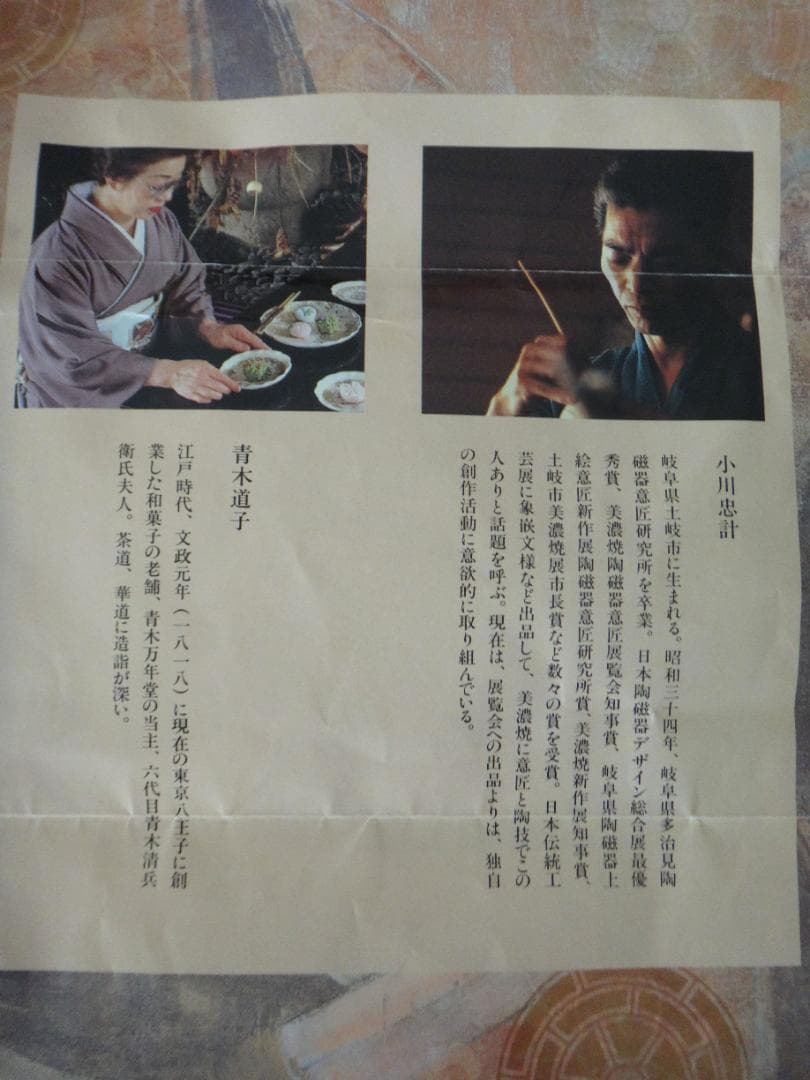 小川忠計
岐阜県土岐市に生まれる。昭和三十四年、岐阜県多治見陶
磁器意匠研究所を卒業。日本陶磁器デザイン総合展最優
秀賞、美濃焼陶磁器意匠展覧会知事賞、岐阜県陶磁器上
絵意匠新作展陶磁器意匠研究所賞、美濃焼新作展知事賞、
土岐市美濃焼展市長賞など数々の賞を受賞。日本伝統工
芸展に象嵌文様など出品して、美濃焼に意匠と陶技でこの
人ありと話題を呼ぶ。現在は、展覧会への出品よりは、独自
の創作活動に意欲的に取り組んでいる。
青木道子
江戸時代、文政元年（一八一八）に現在の東京八王子に創
業した和菓子の老舗、青木万年堂の当主、六代目青木清兵
衛氏夫人。茶道、華道に造詣が深い。